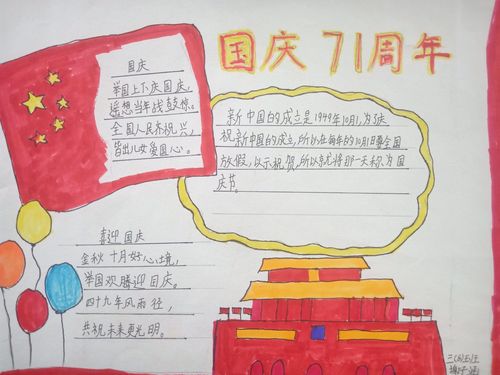 国庆71周年
国庆
举国上下庆国庆,
遥想当年战鼓惊。
全国人民齐祝兴,
皆出儿女爱国心。
新中国的成立是1949年10月1,为了庆
祝新中国的成立,所以在每年的10月1日要全国
放假,以示祝贺,所以京尤将那一天称为国
庆节。
喜迎国庆
金秋十月好心境,
举国欢腾迎国庆。
四十九年风雨径,
共祝未来更光明。